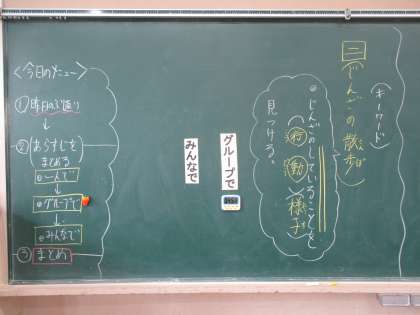 (キーワード)
二 じんごの散歩
◎じんごのしていることを
(行動)(様子)
見つける。
グループで
みんなで
<今日のメニュー>
①昨日のふり返り
↓
②あらすじを
まとめる
◎一人で
↓
◎グループで
↓
◎みんなで
③まとめ